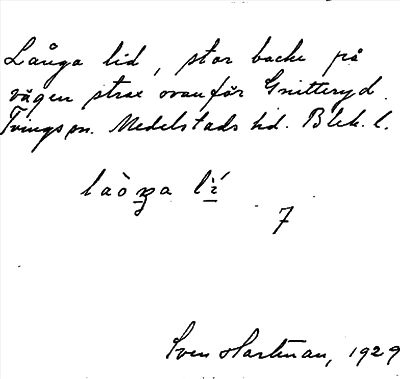 Långa lid, stor backe på
vägen strax ovanför Gnitteryd.
Tvings sn. Medelstads hd. Blek. l.
laòŋa lì́
7
Sven Hartman, 1929